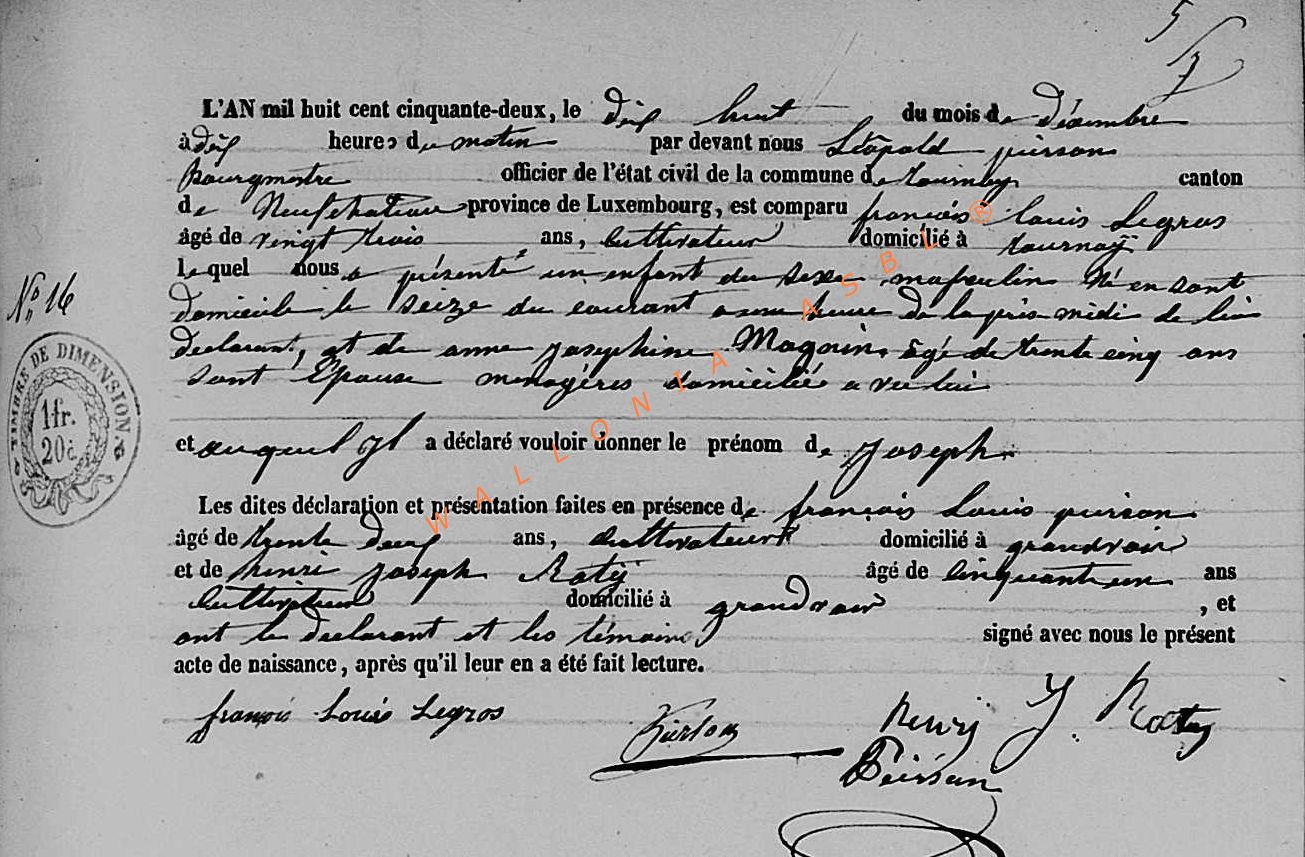 5
7
L'AN mil huit cent cinquante-deux, le dix huit du mois de Décembre
à dix heures du matin par devant nous Léopold pierson
Bourgmestre officier de l'état civil de la commune de tournay canton
de Neufchateau province de Luxembourg, est comparu françois louis Legros
âgé de vingt trois ans, Cultivateur domicilié à tournay
lequel nous a présenté un enfant du sexe masculin Né en sont
domicile le seize du courant a une heure de la près midi de lui
declarant, et de anne josephine Magnin agé de trente cinq ans
sont Epouse menagères domiciliée a vec lui
et auquel jl a déclaré vouloir donner le prénom de joseph
Les dites déclaration et présentation faites en présence de françois Louis pierson
âgé de trente deux ans, Cultivateur domicilié à grandvoir
et de henri joseph Roty âgé de Cinquant un ans
Cultivateur domicilié à grandvoir, et
ont le declarant et les témoins signé avec nous le présent
acte de naissance, après qu'il leur en a été fait lecture.
françois Louis Legros
Pierson
henry J. Rocty
Peirson
N° 16
TIMBRE DE DIMENSION
1fr.
20c.
WALLONIA ASBL ®